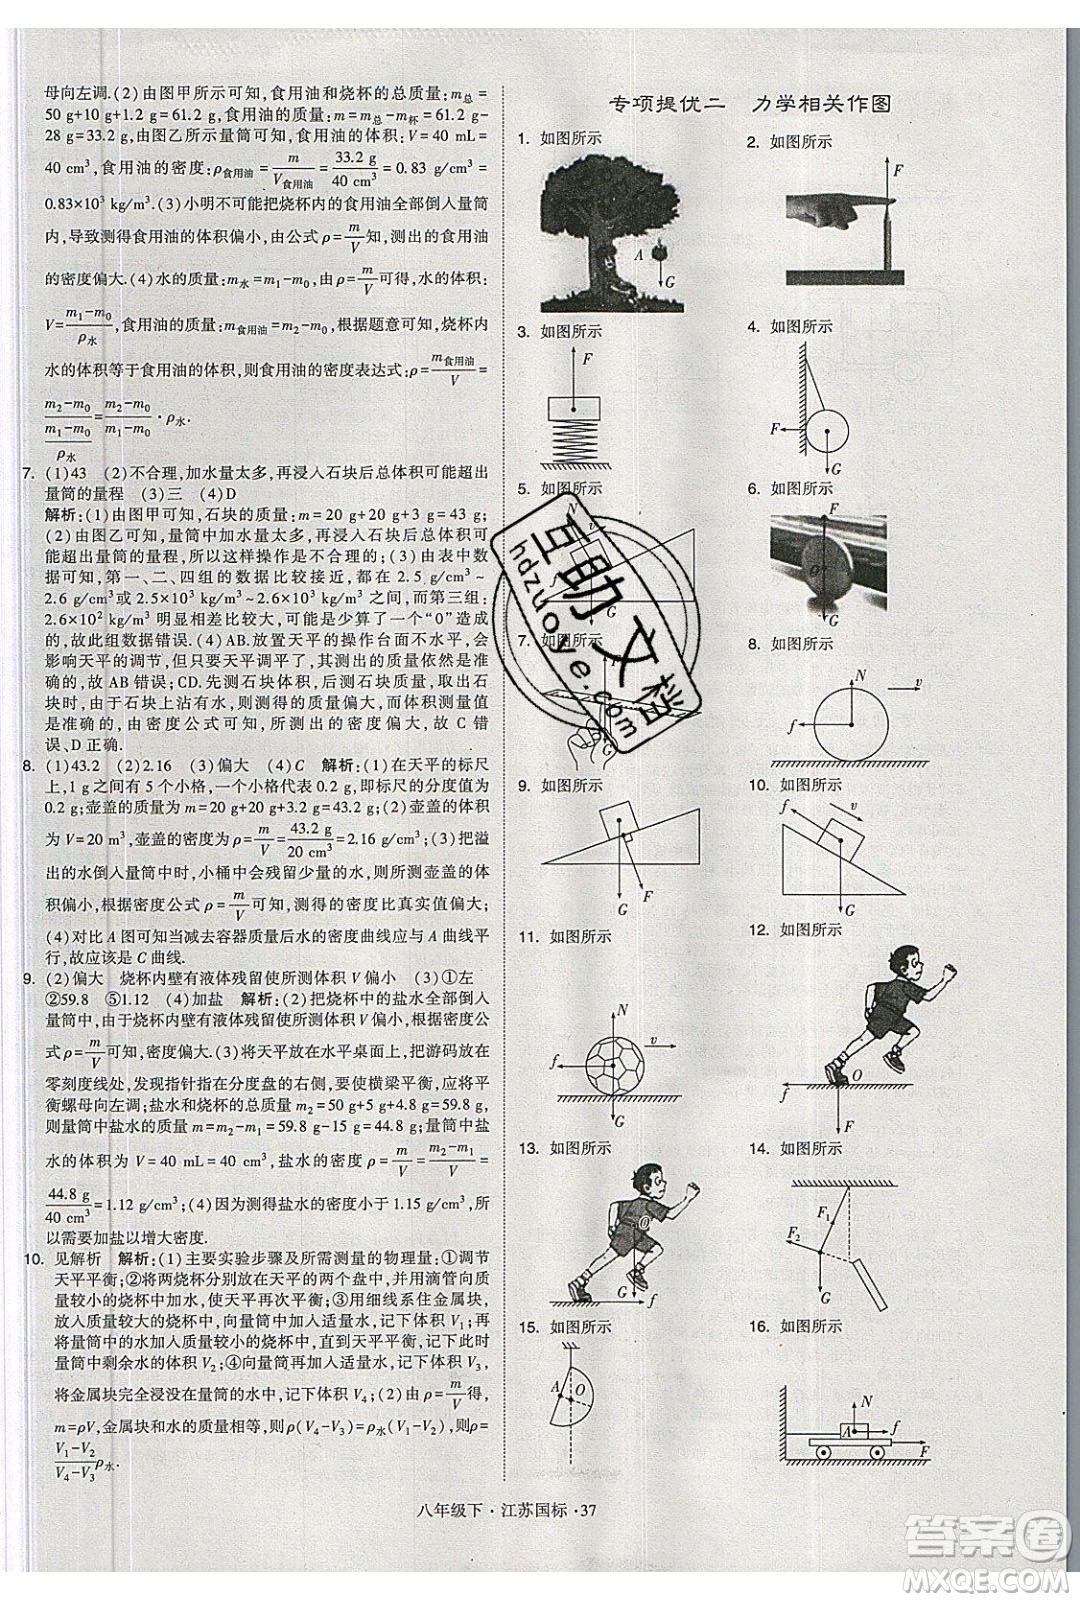 母向左调.(2)由图甲所示可知,食用油和烧杯的总质量:m总=
50 g+10 g+1.2 g=61.2 g,食用油的质量:m=m总-m杯=61.2 g-
28 g=33.2 g,由图乙所示量筒可知,食用油的体积:V=40 mL=
40 cm³,食用油的密度:ρ食用油=m/V食用油=33.2 g/40 cm³=0.83 g/cm³=
0.83×10³ kg/m³.(3)小明不可能把烧杯内的食用油全部倒入量筒
内,导致测得食用油的体积偏小,由公式ρ=m/V知,测出的食用油
的密度偏大.(4)水的质量:m水=m₁-m₀,由ρ=m/V可得,水的体积:
V=(m₁-m₀)/ρ水,食用油的质量:m食用油=m₂-m₀,根据题意可知,烧杯内
水的体积等于食用油的体积,则食用油的密度表达式:ρ=m食用油/V=
(m₂-m₀)/((m₁-m₀)/ρ水)=(m₂-m₀)/(m₁-m₀)·ρ水.
7. (1)43 (2)不合理,加水量太多,再浸入石块后总体积可能超出
量筒的量程 (3)三 (4)D
解析:(1)由图甲可知,石块的质量:m=20 g+20 g+3 g=43 g;
(2)由图乙可知,量筒中加水量太多,再浸入石块后总体积可
能超出量筒的量程,所以这样操作是不合理的;(3)由表中数
据可知,第一、二、四组的数据比较接近,都在 2.5 g/cm³~
2.6 g/cm³或2.5×10³ kg/m³~2.6×10³ kg/m³,而第三组:
2.6 kg/m³明显相差比较大,可能是少算了一个“0”造成
的,故此组数据错误.(4)AB.放置天平的操作台面不水平,会
影响天平的调节,但只要天平调平了,其测出的质量依然是准
确的,故 AB 错误;CD.先测石块体积,后测质量,从水中取出石
块时,由于石块上沾有水,则测得的质量偏大,而体积测量值
是准确的,由密度公式可知,所测出的密度偏大,故 C 错
误、D 正确.
8. (1)43.2 (2)2.16 (3)偏大 (4)C 解析:(1)在天平的标尺
上,1 g 之间有 5 个小格,一个小格代表 0.2 g,即标尺的分度值为
0.2 g;壶盖的质量为 m=20 g+20 g+3.2 g=43.2 g;(2)壶盖的体积
为 V=20 m³,壶盖的密度为ρ=m/V=43.2 g/20 cm³=2.16 g/cm³;(3)把溢
出的水倒入量筒中时,小桶中会残留少量的水,测量出的水的体
积偏小,根据密度公式ρ=m/V可知,测得的密度比真实值偏大;
(4)对比 A 图可知当减去容器质量后水的密度曲线应与 A 曲线平
行,故应该是 C 曲线.
9. (2)偏大 烧杯内壁有液体残留使所测体积 V 偏小 (3)①左
②59.8 ⑤1.12 (4)加盐 解析:(2)把烧杯中的盐水全部倒入
量筒中,由于烧杯内壁有液体残留使所测体积 V 偏小,根据密度公
式ρ=m/V可知,密度偏大.(3)将天平放在水平桌面上,把游码向左移到
零刻度线处,发现指针指在分度盘的右侧,要使横梁平衡,应将平
衡螺母向左调;盐水和烧杯的总质量m₂=50 g+5 g+4.8 g=59.8 g,
则量筒中盐水的质量 m=m₂-m₁=59.8 g-15 g=44.8 g;量筒中盐
水的体积为 V=40 mL=40 cm³,盐水的密度为ρ=m/V=(m₂-m₁)/V=
44.8 g/40 cm³=1.12 g/cm³;(4)因为测得盐水的密度小于1.15 g/cm³,所
以需要加盐以增大密度.
10. 见解析 解析:(1)主要实验步骤及所需测量的物理量:①调节
天平平衡;②将两烧杯分别放在天平的两个盘中,并用滴管向质
量较小的烧杯中加水,使天平再次平衡;③用细线系住金属块,
放入质量较大的烧杯中,向量筒中加入适量水,记下体积 V₁,
将量筒中的水加入质量较小的烧杯中,直到天平平衡,记下此时
量筒中剩余水的体积 V₂;④向量筒中加入适量水,记下体积V₃,
将金属块完全浸没在量筒的水中,记下体积 V₄;(2)由ρ=m/V得,
m=ρV,金属块和水的质量相等,则ρ(V₄-V₃)=ρ水(V₁-V₂),则ρ=
(V₁-V₂)/(V₄-V₃)ρ水.
专项提优二 力学相关作图
1. 如图所示 2. 如图所示
A G F
3. 如图所示 4. 如图所示
F F G
5. 如图所示 6. 如图所示
N v F O
7. 如图所示 8. 如图所示
G N v f
9. 如图所示 10. 如图所示
F G f v G
11. 如图所示 12. 如图所示
N v f G f O F
13. 如图所示 14. 如图所示
O G f F₁ F₂ G
15. 如图所示 16. 如图所示
A O N A f F
八年级下·江苏国标·37
互助文档
hdzuoye.com
答案圈
MXQE.COM